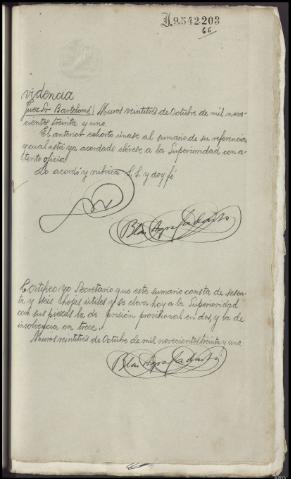 J.9.542.203
66
Providencia
Juez Sr Bartolomé Muros veintitres de Octubre de mil nove-
cientos treinta y uno.
El anterior exhorto únase al sumario de su referencia,
y cual está ya acordado elévese a la Superioridad con a-
tento oficio.
Lo acordó y rubrica S.S. y doy fé
Blas Agra
Certifico yo Secretario que este sumario consta de sesen-
ta y seis folios útiles y se eleva hoy a la Superioridad
con sus piezas la de prisión provisional en dos, y la de
insolvencia en trece.
Muros veintitres de Octubre de mil novecientos treinta y uno
Blas Agra